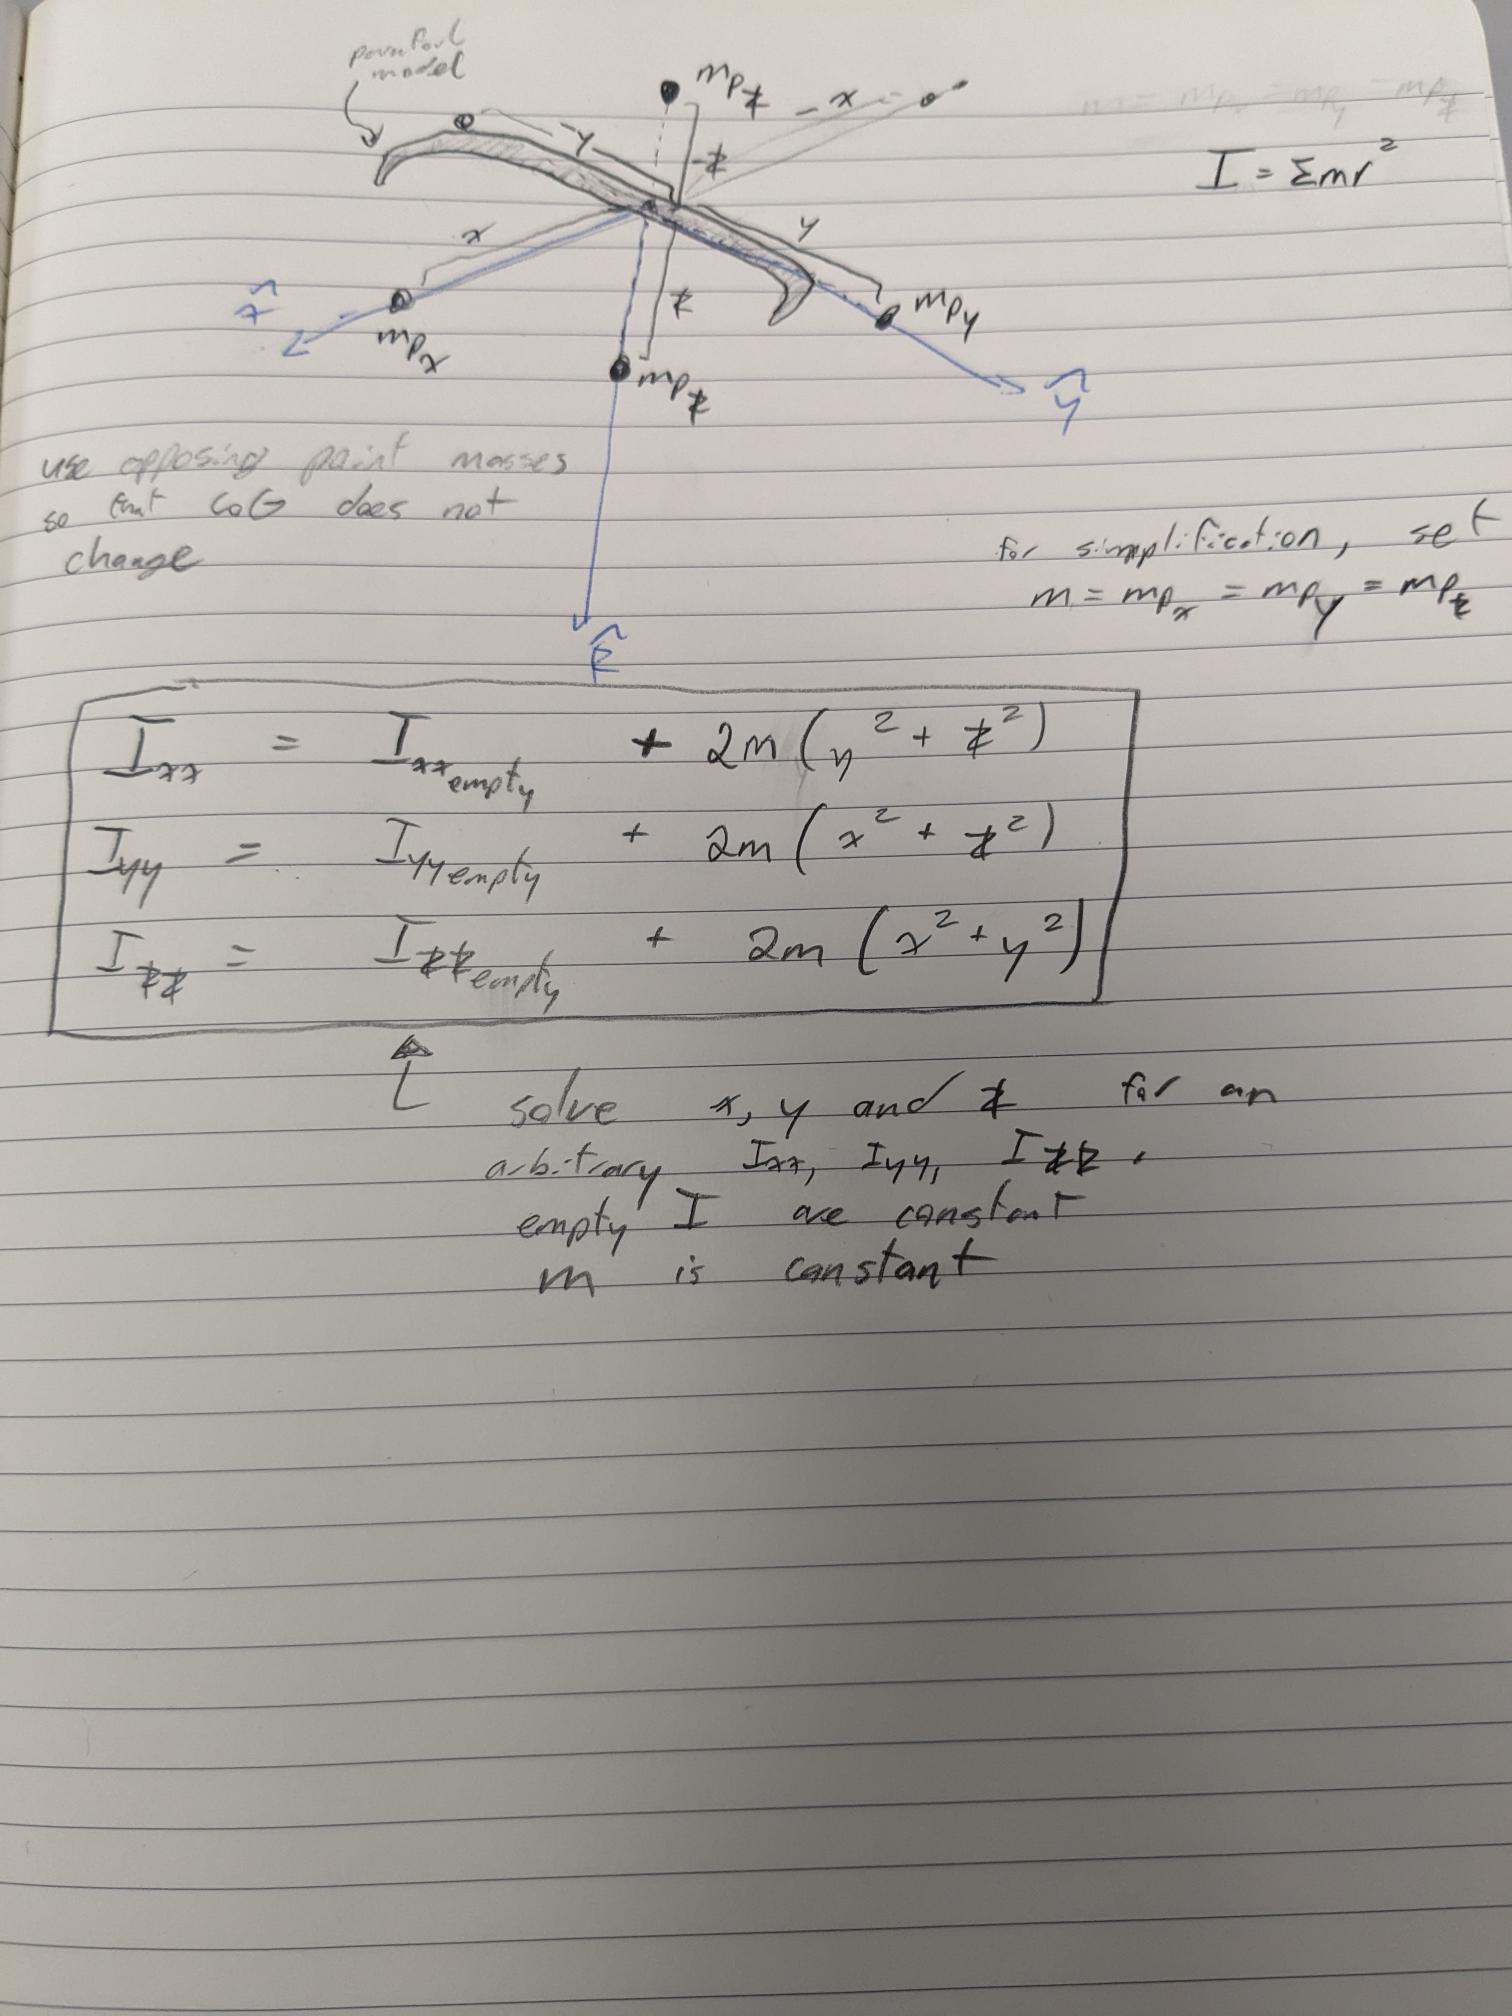 model
mp_z
x
m = mp_x = mp_y = mp_z
-y
-z
I = Σmr²
x
y
x̂
z
mp_y
mp_x
mp_z
ŷ
use opposing point masses
so that CoG does not
change
for simplification, set
m = mp_x = mp_y = mp_z
ẑ
I_xx = I_xx_empty + 2m(y² + z²)
I_yy = I_yy_empty + 2m(x² + z²)
I_zz = I_zz_empty + 2m(x² + y²)
solve x, y and z for an
arbitrary Ixx, Iyy, Izz.
empty I are constant
m is constant